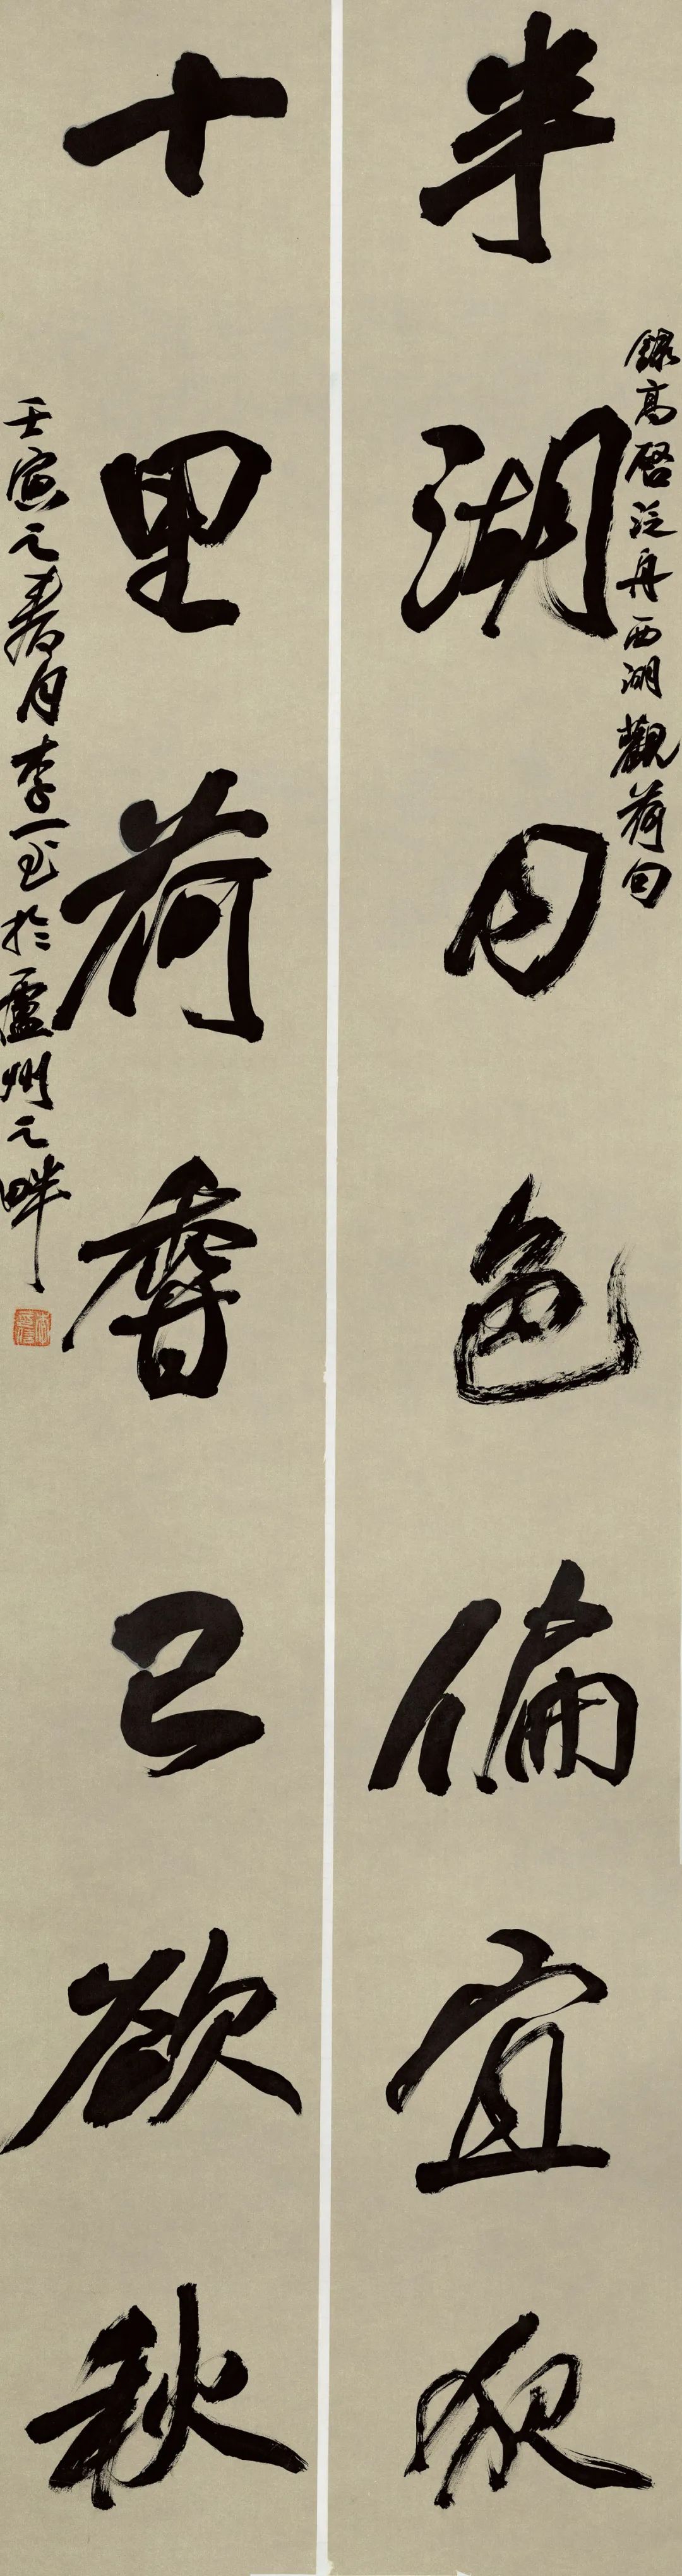 半湖月色偏宜夜
錄高啓泛舟西湖觀荷句
十里荷香已欲秋
壬寅之春月李一書於廬州之畔